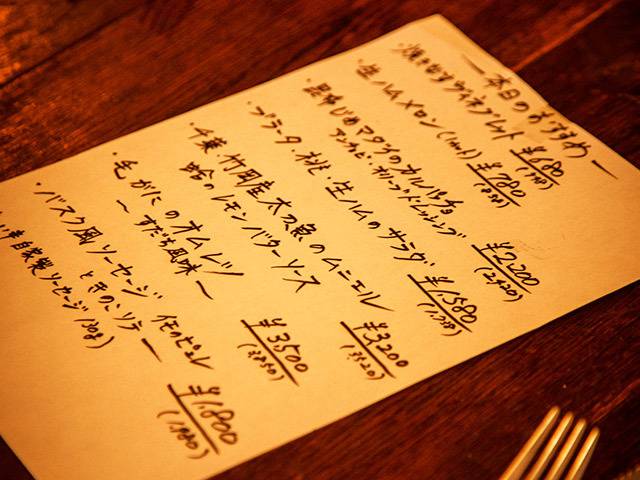 ー本日のおすすめー
・焼きなすのヴルーテ ¥680
(748)
・生ハムメロン(1cut) ¥780
(858)
・昆布じめマダイのカルパッチョ
アンチョビ・オリーブドレッシング ¥2,200
(2,420)
・ブラータ、桃、生ハムのサラダ ¥1,580
(1,738)
・千葉・竹岡産太刀魚のムニエル
蛤のレモンバターソース ¥3,200
(3,520)
・毛がにのオムレツ
〜すだち風味〜 ¥3,500
(3,850)
・バスク風ソーセージ
ときのこソテー
自家製ソーセージ130g) ¥1,800
(1,980)